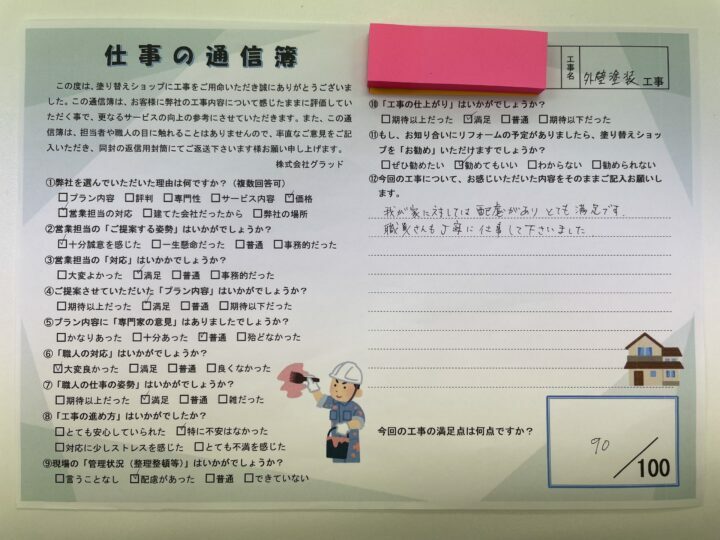 仕事の通信簿
この度は、塗り替えショップに工事をご用命いただき誠にありがとうございま
した。この通信簿は、お客様に弊社の工事内容について感じたままに評価してい
ただく事で、更なるサービスの向上の参考にさせていただきます。また、この通
信簿は、担当者や職人の目に触れることはありませんので、率直なご意見をご記
入いただき、同封の返信用封筒にてご返送下さいます様お願い申し上げます。
株式会社グラッド
①弊社を選んでいただいた理由は何ですか？（複数回答可）
□プラン内容 □評判 □専門性 □サービス内容 ☑価格
☑営業担当の対応 □建てた会社だったから □弊社の場所
②営業担当の「ご提案する姿勢」はいかがでしたか？
☑十分誠意を感じた □一生懸命だった □普通 □事務的だった
③営業担当の「対応」はいかかでしょうか？
□大変よかった ☑満足 □普通 □事務的だった
④ご提案させていただいた「プラン内容」はいかがでしょうか？
□期待以上だった ☑満足 □普通 □期待以下だった
⑤プラン内容に「専門家の意見」はありましたでしょうか？
□かなりあった □十分あった ☑普通 □殆どなかった
⑥「職人の対応」はいかがでしょうか？
☑大変良かった □満足 □普通 □良くなかった
⑦「職人の仕事の姿勢」はいかがでしょうか？
□期待以上だった ☑満足 □普通 □雑だった
⑧「工事の進め方」はいかがでしたか？
□とても安心していられた ☑特に不安はなかった
□対応に少しストレスを感じた □とても不満を感じた
⑨現場の「管理状況（整理整頓等）」はいかがでしょうか？
□言うことなし ☑配慮があった □普通 □できていない
工事名 外壁塗装 工事
⑩「工事の仕上がり」はいかがでしょうか？
□期待以上だった ☑満足 □普通 □期待以下だった
⑪もし、お知り合いにリフォームの予定がありましたら、塗り替えショッ
プを「お勧め」いただけますでしょうか？
□ぜひ勧めたい ☑勧めてもいい □わからない □勧められない
⑫今回の工事について、お感じいただいた内容をそのままご記入お願いし
ます。
我が家に対しては配慮がありとても満足です。
職員さんも丁寧に仕事して下さいました
今回の工事の満足点は何点ですか？
90/100